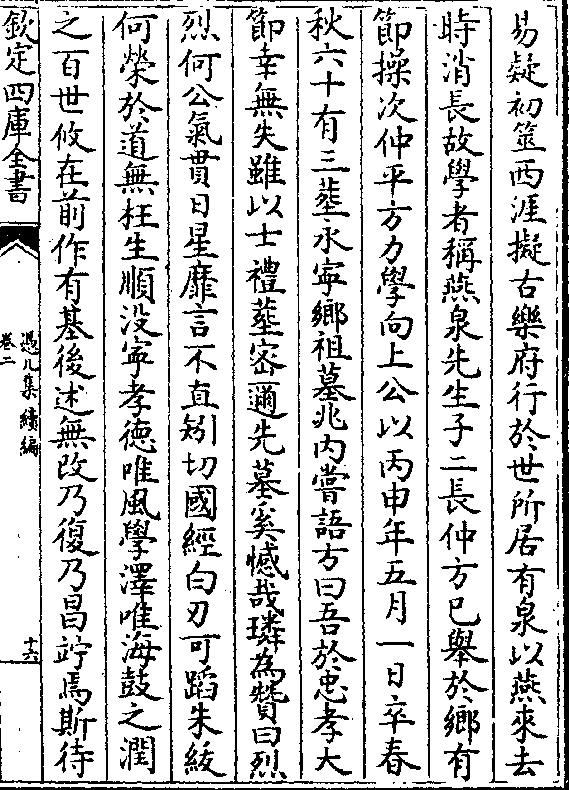 易疑初筮西涯擬古樂府行於世所居有泉以燕來去
時消長故學者稱燕泉先生子二長仲方已舉於鄉有
節操次仲平方力學向上公以丙申年五月一日卒春
秋六十有三塟永寧鄉祖墓兆内嘗語方曰吾於忠孝大
節幸無失雖以士禮塟宻邇先墓奚憾哉璘為贊曰烈
烈何公氣貫日星靡言不直矧切國經白刃可蹈朱紱
何榮於道無枉生順没寧孝徳唯風學澤唯海鼓之潤
之百世攸在前作有基後述無改乃復乃昌竚焉斯待
欽定四庫全書
憑几集續編
卷二
十六